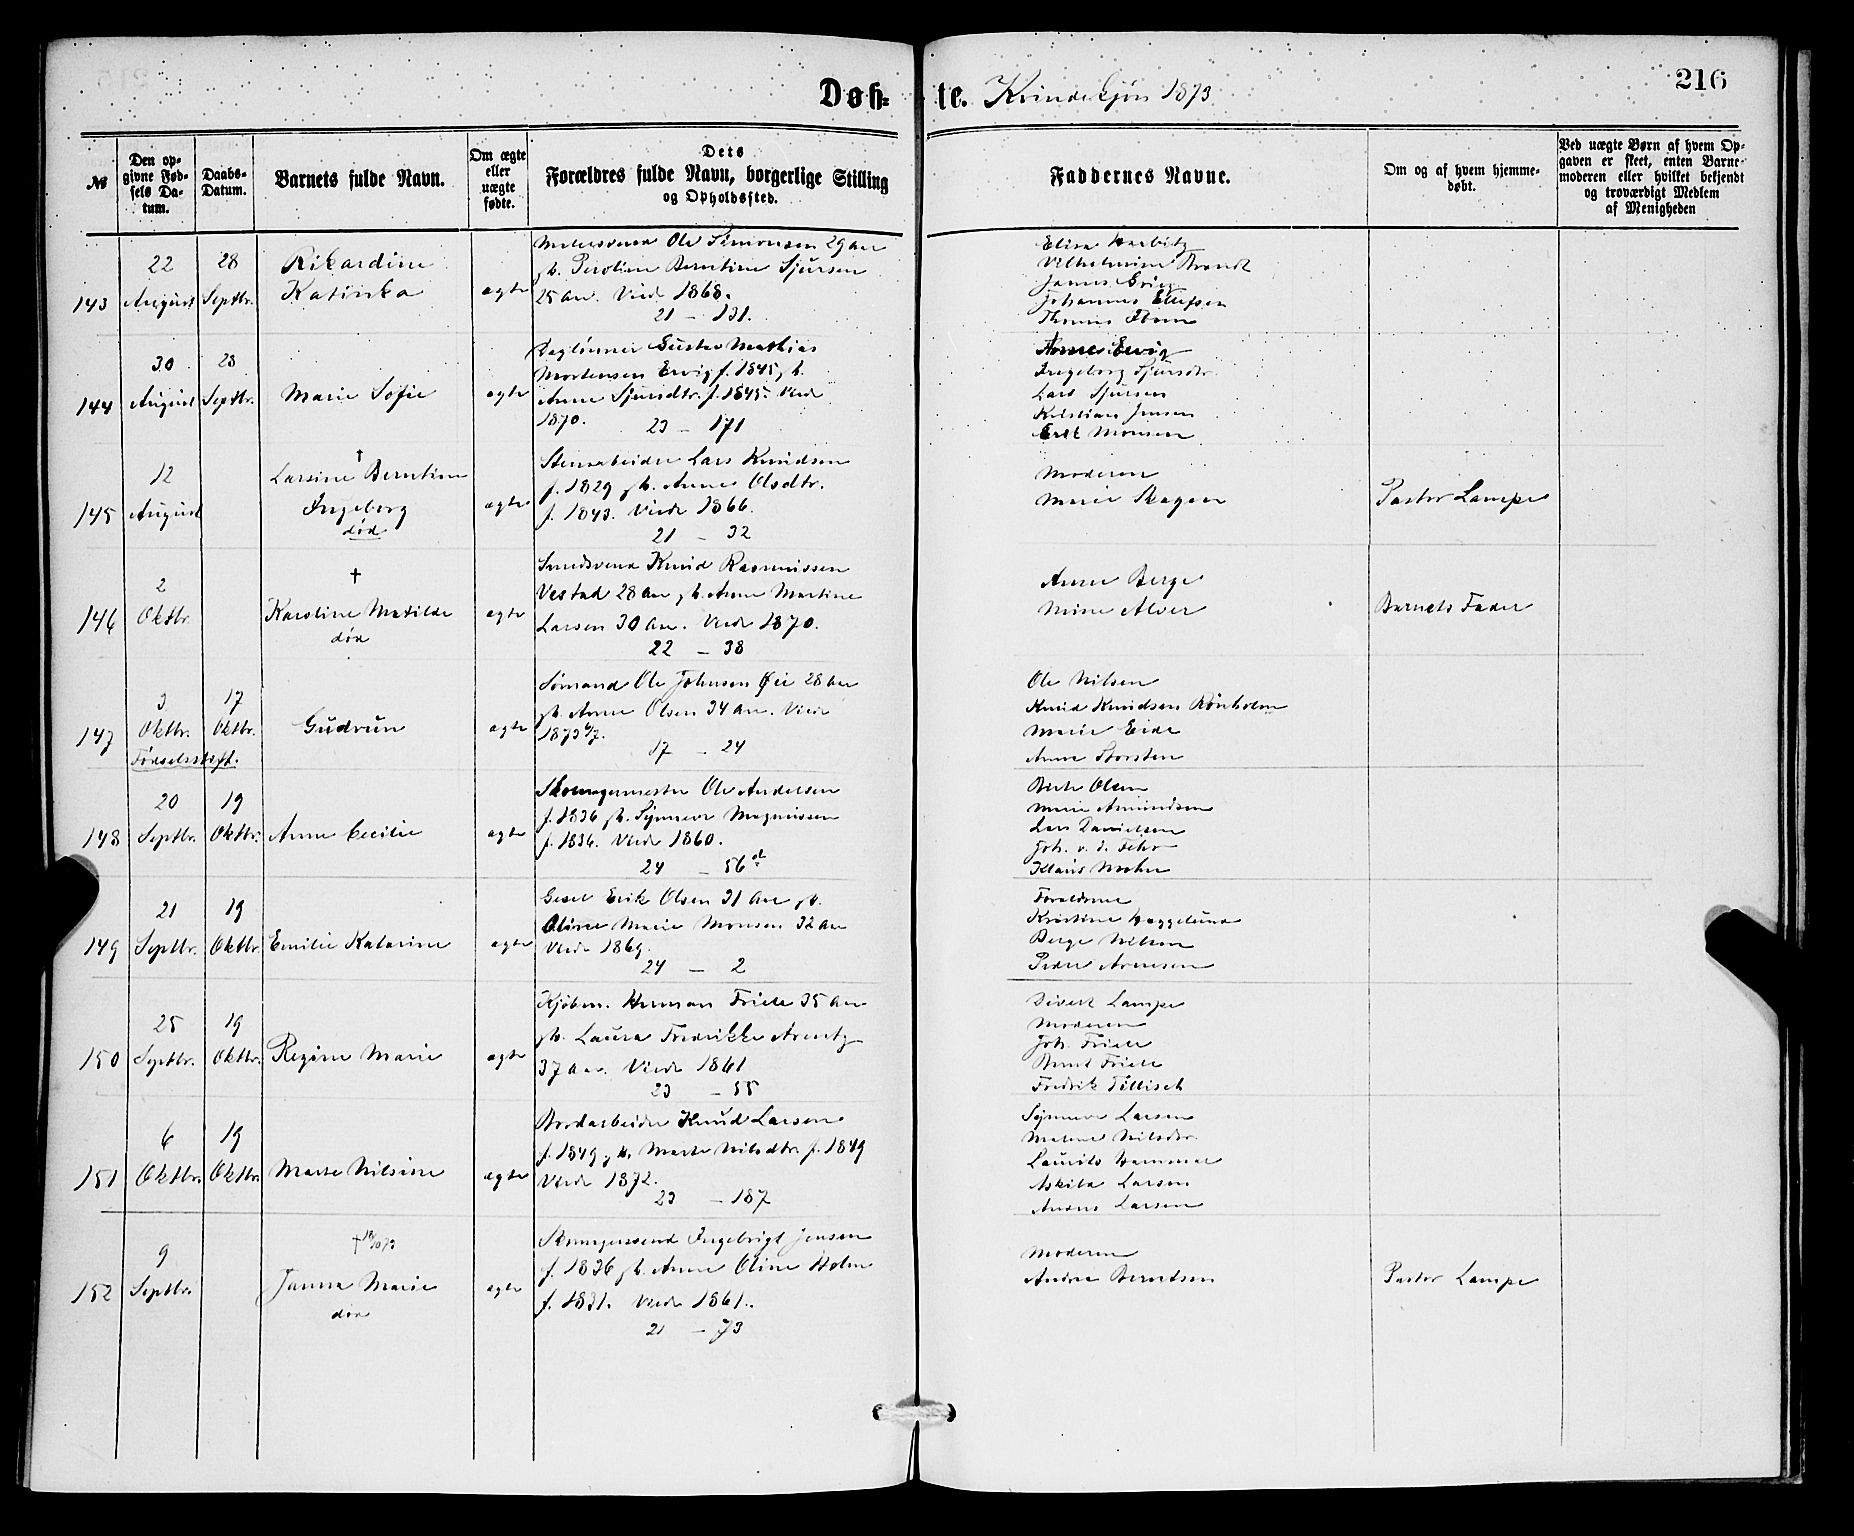 216
Døb- te. Kvindekjøn 1873
№
Den opgivne Fødsels Datum.
Daabs-Datum.
Barnets fulde Navn.
Om ægte eller uægte fødte.
Dets Forældres fulde Navn, borgerlige Stilling og Opholdssted.
Faddernes Navne.
Om og af hvem hjemmedøbt.
Ved uægte Børn af hvem Opgaven er skeet, enten Barnemoderen eller hvilket bekjendt og troværdigt Medlem af Menigheden
143
22 August
28 Septbr.
Rikardine
Katinka
ægte
Ole Simonsen 29 Aar
Berntine Sjursen
25 Aar. Viede 1868.
21 - 131.
Elisa Harbitz
Vilhelmine Brandt
Johannes Ellefsen
144
30 August
28 Septbr.
Marie Sofie
ægte
Daglønner Gustav Mathias
Mortensen Ervig f. 1845, h.
Anne Sjursdtr. f. 1845. Viede
1870.
23 - 171
Anne Ervig
Ingeborg Sjursdtr.
Lars Sjursen
Kristian Jensen
Erik Monsen
145
12 August
†
Larsine Berntine
Ingeborg
død
ægte
Stenarbeider Lars Knudsen
f. 1829 h. Anne Olsdtr.
f. 1843. Viede 1866.
21 - 32
Moderen
Marie Skagen
Pastor Lampe
146
2 Oktbr.
†
Karoline Matilde
død
ægte
Smedsvend Knud Rasmussen
Vestad 28 Aar, h. Anne Martine
Larsen 30 Aar. Viede 1870.
22 - 38
Anne Berge
Mine Alver
Barnets Fader
147
3 Oktbr.
17 Oktbr.
Fødselsstift.
Gudrun
ægte
Sømand Ole Johnsen Øie 28 Aar
h. Anne Olsen 34 Aar. Viede
1873 6/7.
17 - 24
Ole Nilsen
Knud Knudsen Rønholm
Marie Eide
Anne Torsten
148
20 Septbr.
19 Oktbr.
Anne Cecilie
ægte
Skomagermester Ole Andersen
f. 1836 h. Synneve Magnussen
f. 1836. Viede 1860.
24 - 56
Berte Olsen
Marie Amundsen
Lars Danielsen
Joh. v. d. Fehr
Klaus Mohn
149
21 Septbr.
19 Oktbr.
Emilie Katarine
ægte
Gesel Erik Olsen 31 Aar h.
Oline Marie Monsen 32 Aar
Viede 1869.
24 - 2
Forældrene
Kristine Hæggelund
Berge Nilsen
Peder Arnesen
150
25 Septbr.
19 Oktbr.
Regine Marie
ægte
Kjøbm. Herman Friele 35 Aar
h. Laura Fredrikke Arentz
37 Aar. Viede 1861
23 - 55
Sivert Lampe
Moderen
Joh. Friele
Bernt Friele
Fredrik Tillisch
151
6 Oktbr.
19 Oktbr.
Marte Nilsine
ægte
Bordarbeider Knud Larsen
f. 1849, h. Marte Nilsdtr. f. 1849
Viede 1872.
23 - 187
Synneve Larsen
Malene Nilsdtr.
Laurits Hammer
Askild Larsen
Anders Larsen
152
9 Septbr.
†
Janna Marie
død
ægte
Skomagersvend Ingebrigt Jensen
f. 1836 h. Anne Oline Holm
f. 1831. Viede 1861.
21 - 73
Moderen
Andrea Berntsen
Pastor Lampe